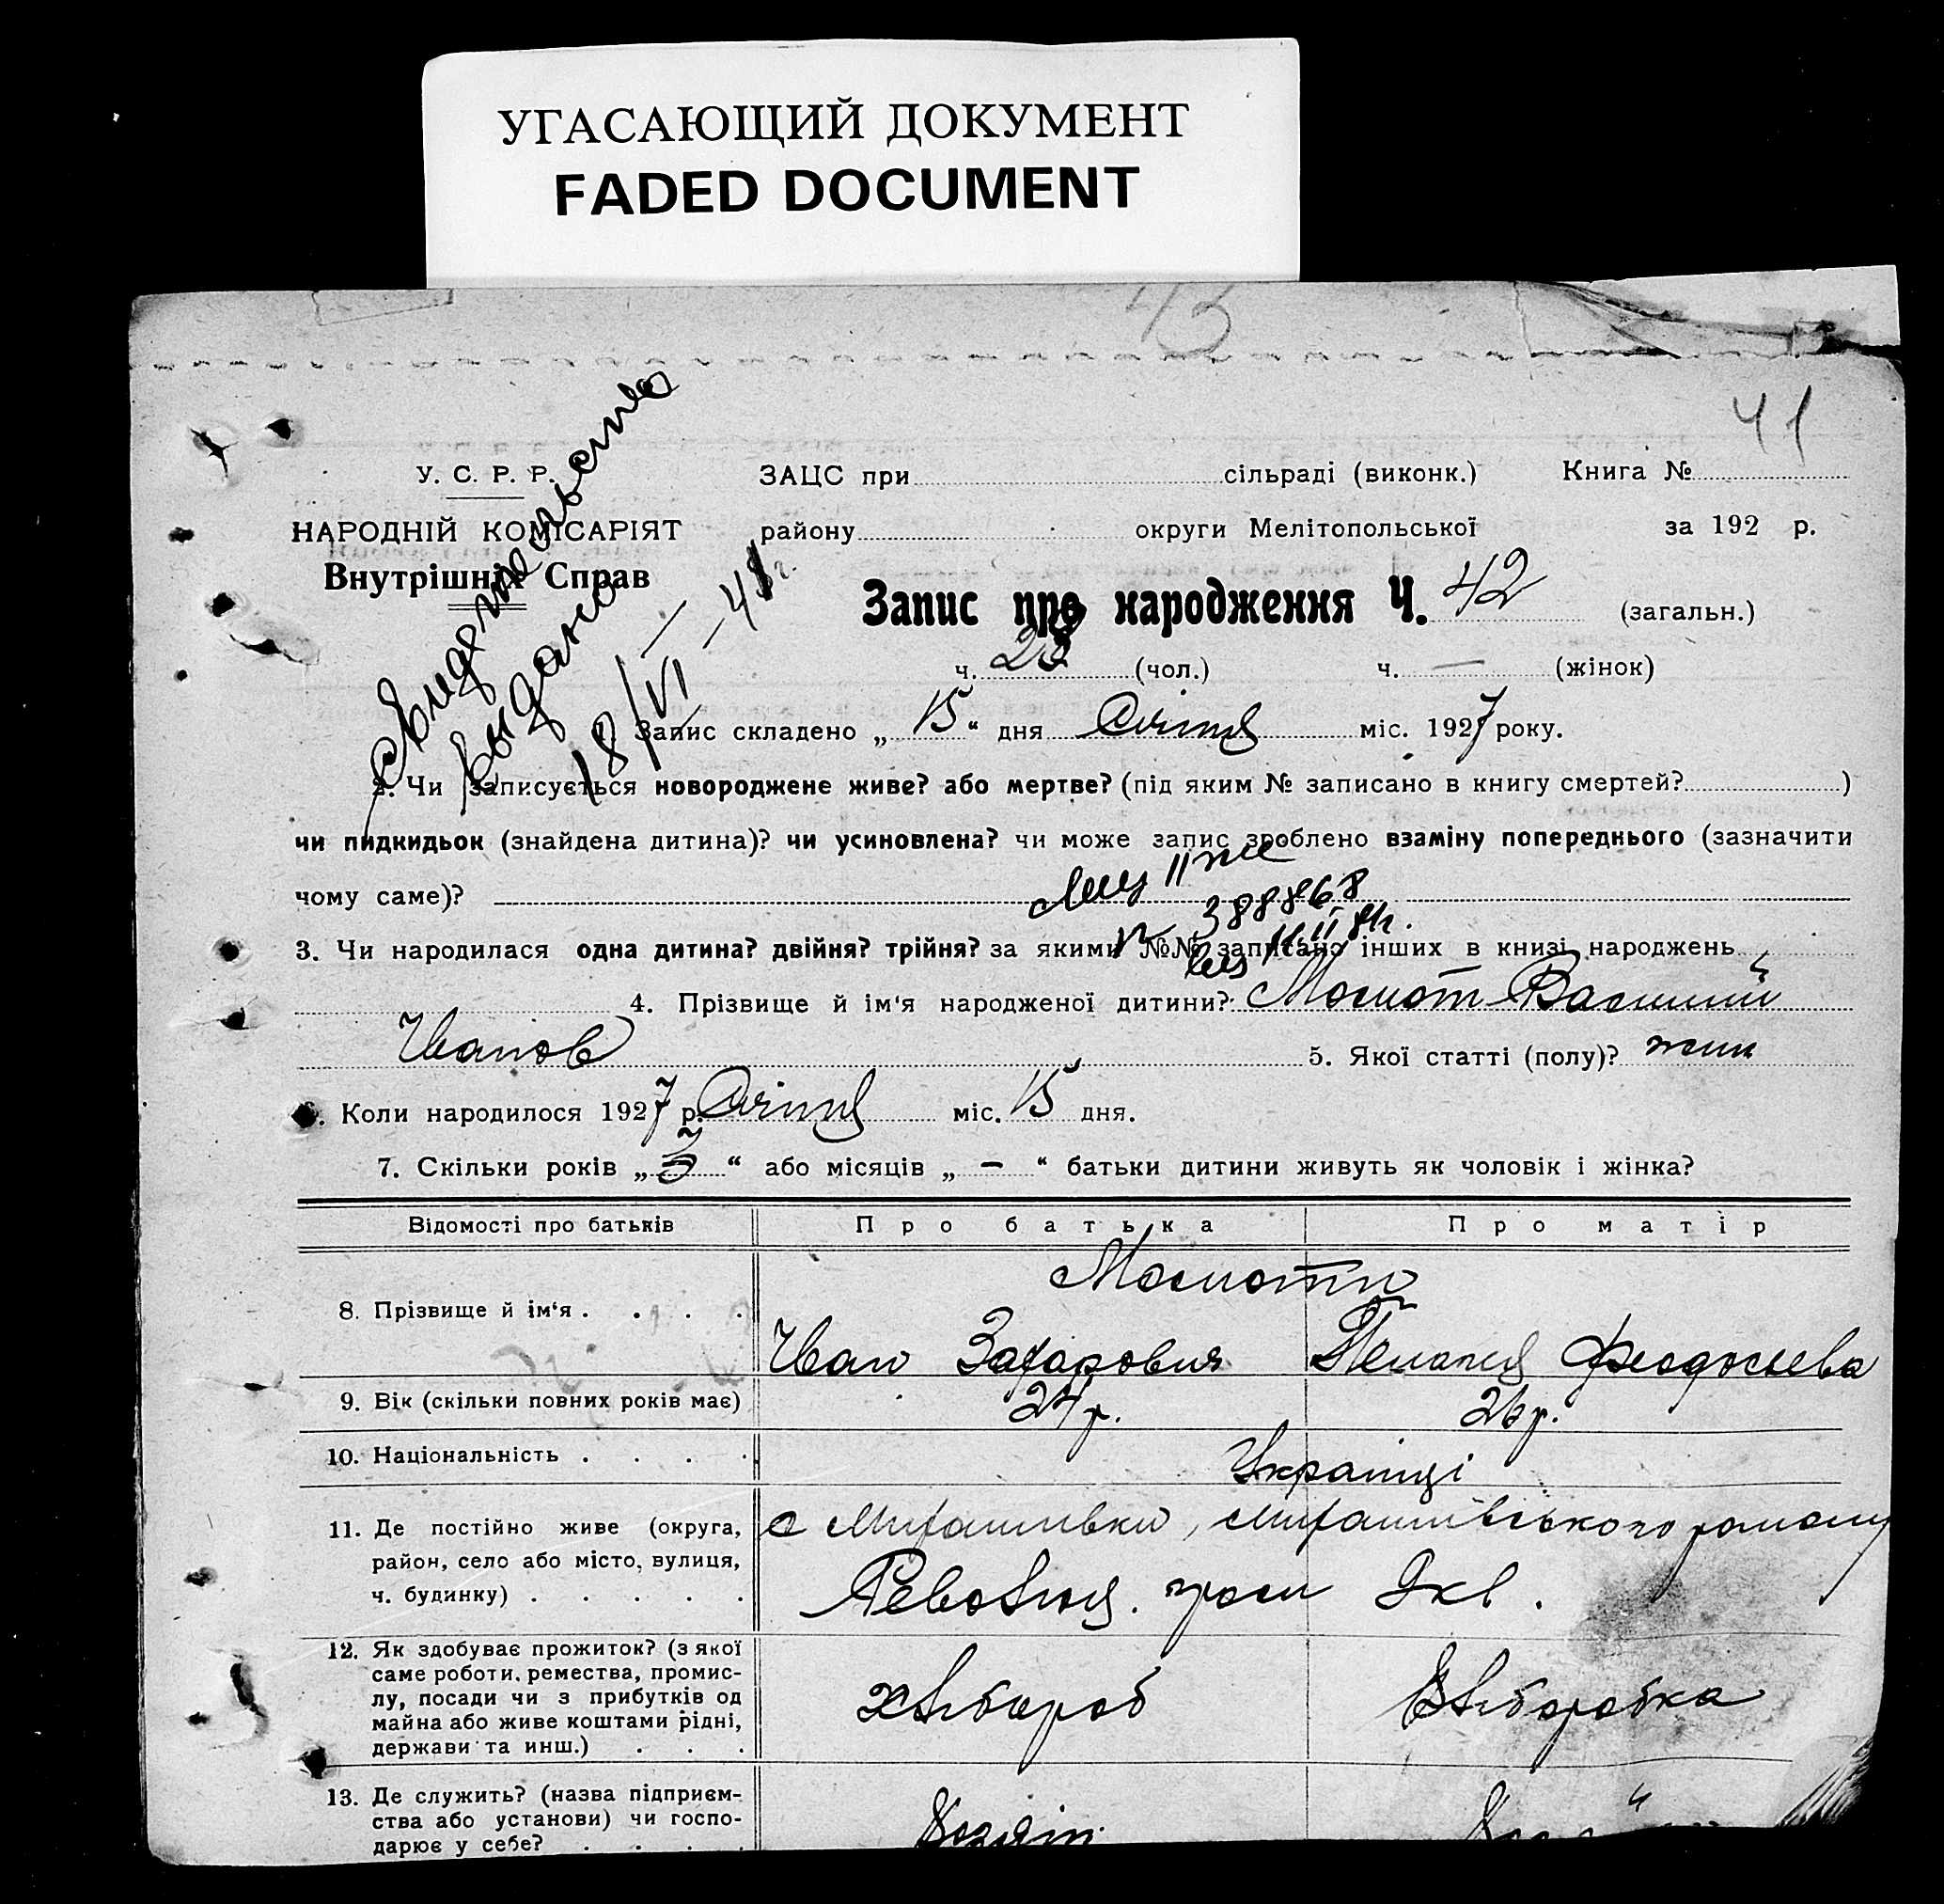 УГАСАЮЩИЙ ДОКУМЕНТ
FADED DOCUMENT
43
41
У. С. Р. Р.
НАРОДНІЙ КОМІСАРІЯТ
Внутрішніх Справ
Свидетельство
выдано
18/VI-48г.
ЗАЦС при сільраді (виконк.) Книга №
району округи Мелітопольської за 192 р.
Запис про народження Ч. 42 (загальн.)
ч. 28 (чол.) ч. — (жінок)
1. Запис складено „ 15 “ дня Січня міс. 1927 року.
2. Чи записується новороджене живе? або мертве? (під яким № записано в книгу смертей? )
чи пидкидьок (знайдена дитина)? чи усиновлена? чи може запис зроблено взаміну попереднього (зазначити
чому саме)?
388868
3. Чи народилася одна дитина? двійня? трійня? за якими №№ записано інших в книзі народжень
4. Прізвище й ім‘я народженої дитини? Василий
Іванов 5. Якої статті (полу)?
6. Коли народилося 1927 р. Січня міс. 15 дня.
7. Скільки років „ 3 “ або місяців „ – “ батьки дитини живуть як чоловік і жінка?
Відомості про батьків Про батька Про матір
8. Прізвище й ім‘я . . . .
Іван Захарович Пелагея Феодосиева
9. Вік (скільки повних років має) 24 р. 26 р.
10. Національність . . . . Українці
11. Де постійно живе (округа,
район, село або місто, вулиця,
ч. будинку) . . . . .
с Михайлівки, Михайлівського району
12. Як здобуває прожиток? (з якої
саме роботи, ремества, промис-
лу, посади чи з прибутків од
майна або живе коштами рідні,
держави та инш.) . . .
хлібороб хліборобка
13. Де служить? (назва підприєм-
ства або установи) чи госпо-
дарює у себе? . . . .
Хозяїн